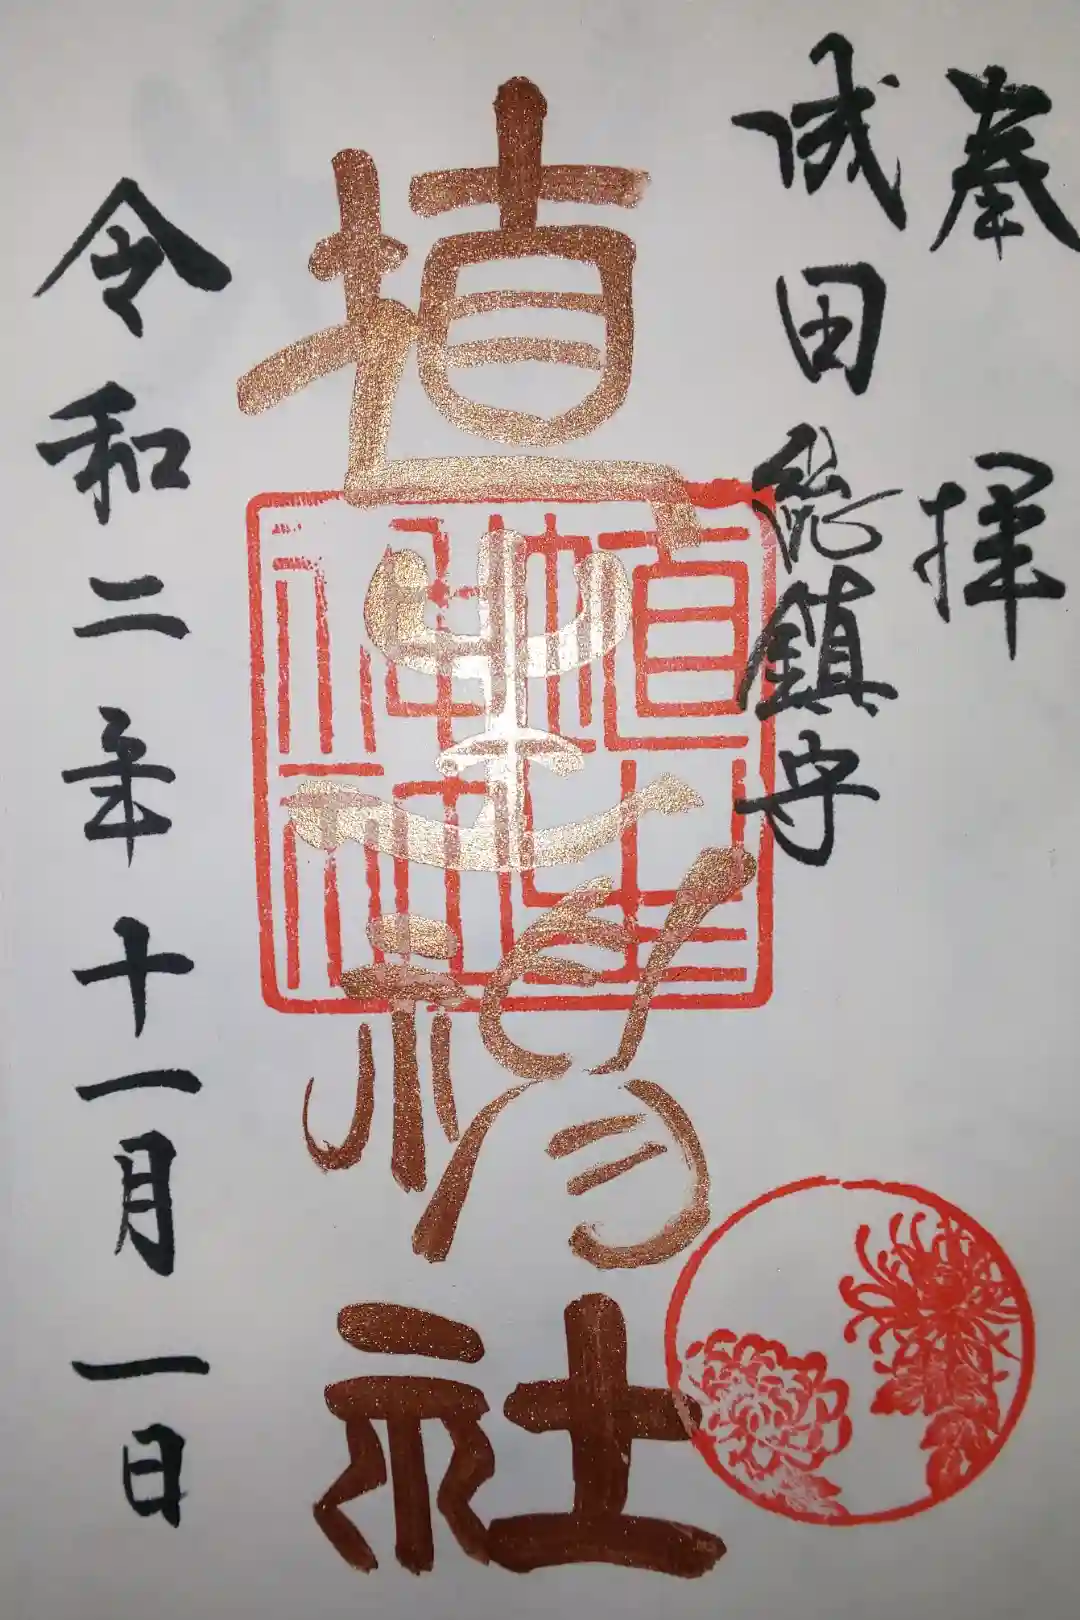 奉拝
成田総鎮守
埴生神社
埴生神社
令和二年十一月一日